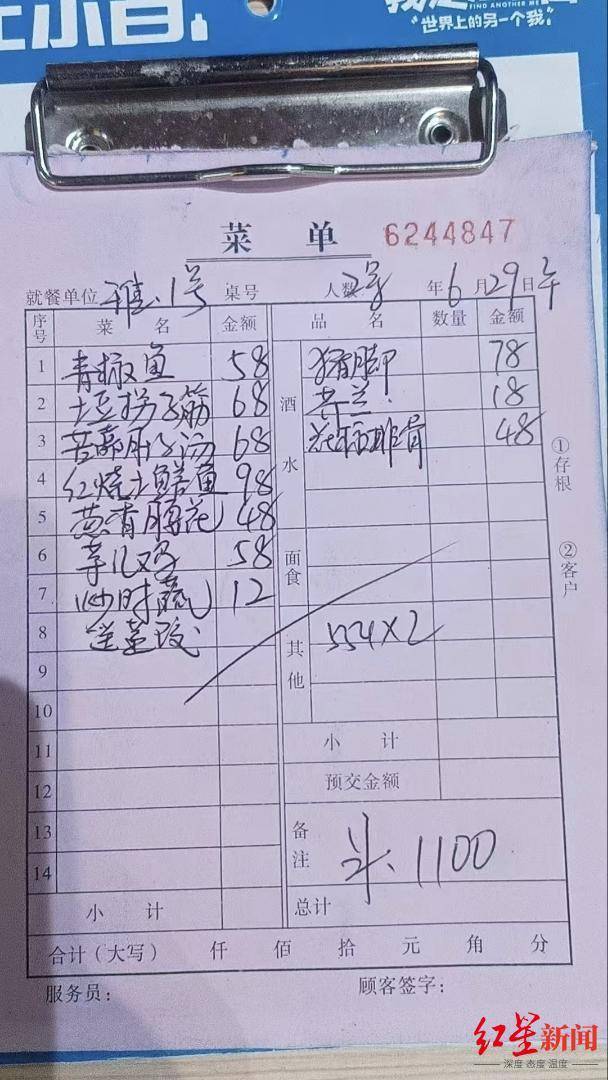 FIND ANOTHER ME
"世界上的另一个我"
菜 单 6244847
就餐单位 雅.1号 桌号 人数 2号 年6月29日午
序号 菜 名 金额 品 名 数量 金额
1 青椒鱼 58 猪脚 78
2 土豆拐子筋 68 酒水 芥兰 18
3 68 排骨 48
4 红烧土鳝鱼 98
5 48
6 58 面食
7 炒时蔬 12
8 送 其他 554×2
9
10
11 小 计
12 预交金额
13 备注 斗.1100
14
小 计 总计
合计（大写） 仟 佰 拾 元 角 分
服务员： 顾客签字：
①存根
②客户
红星新闻
深度 态度 温度